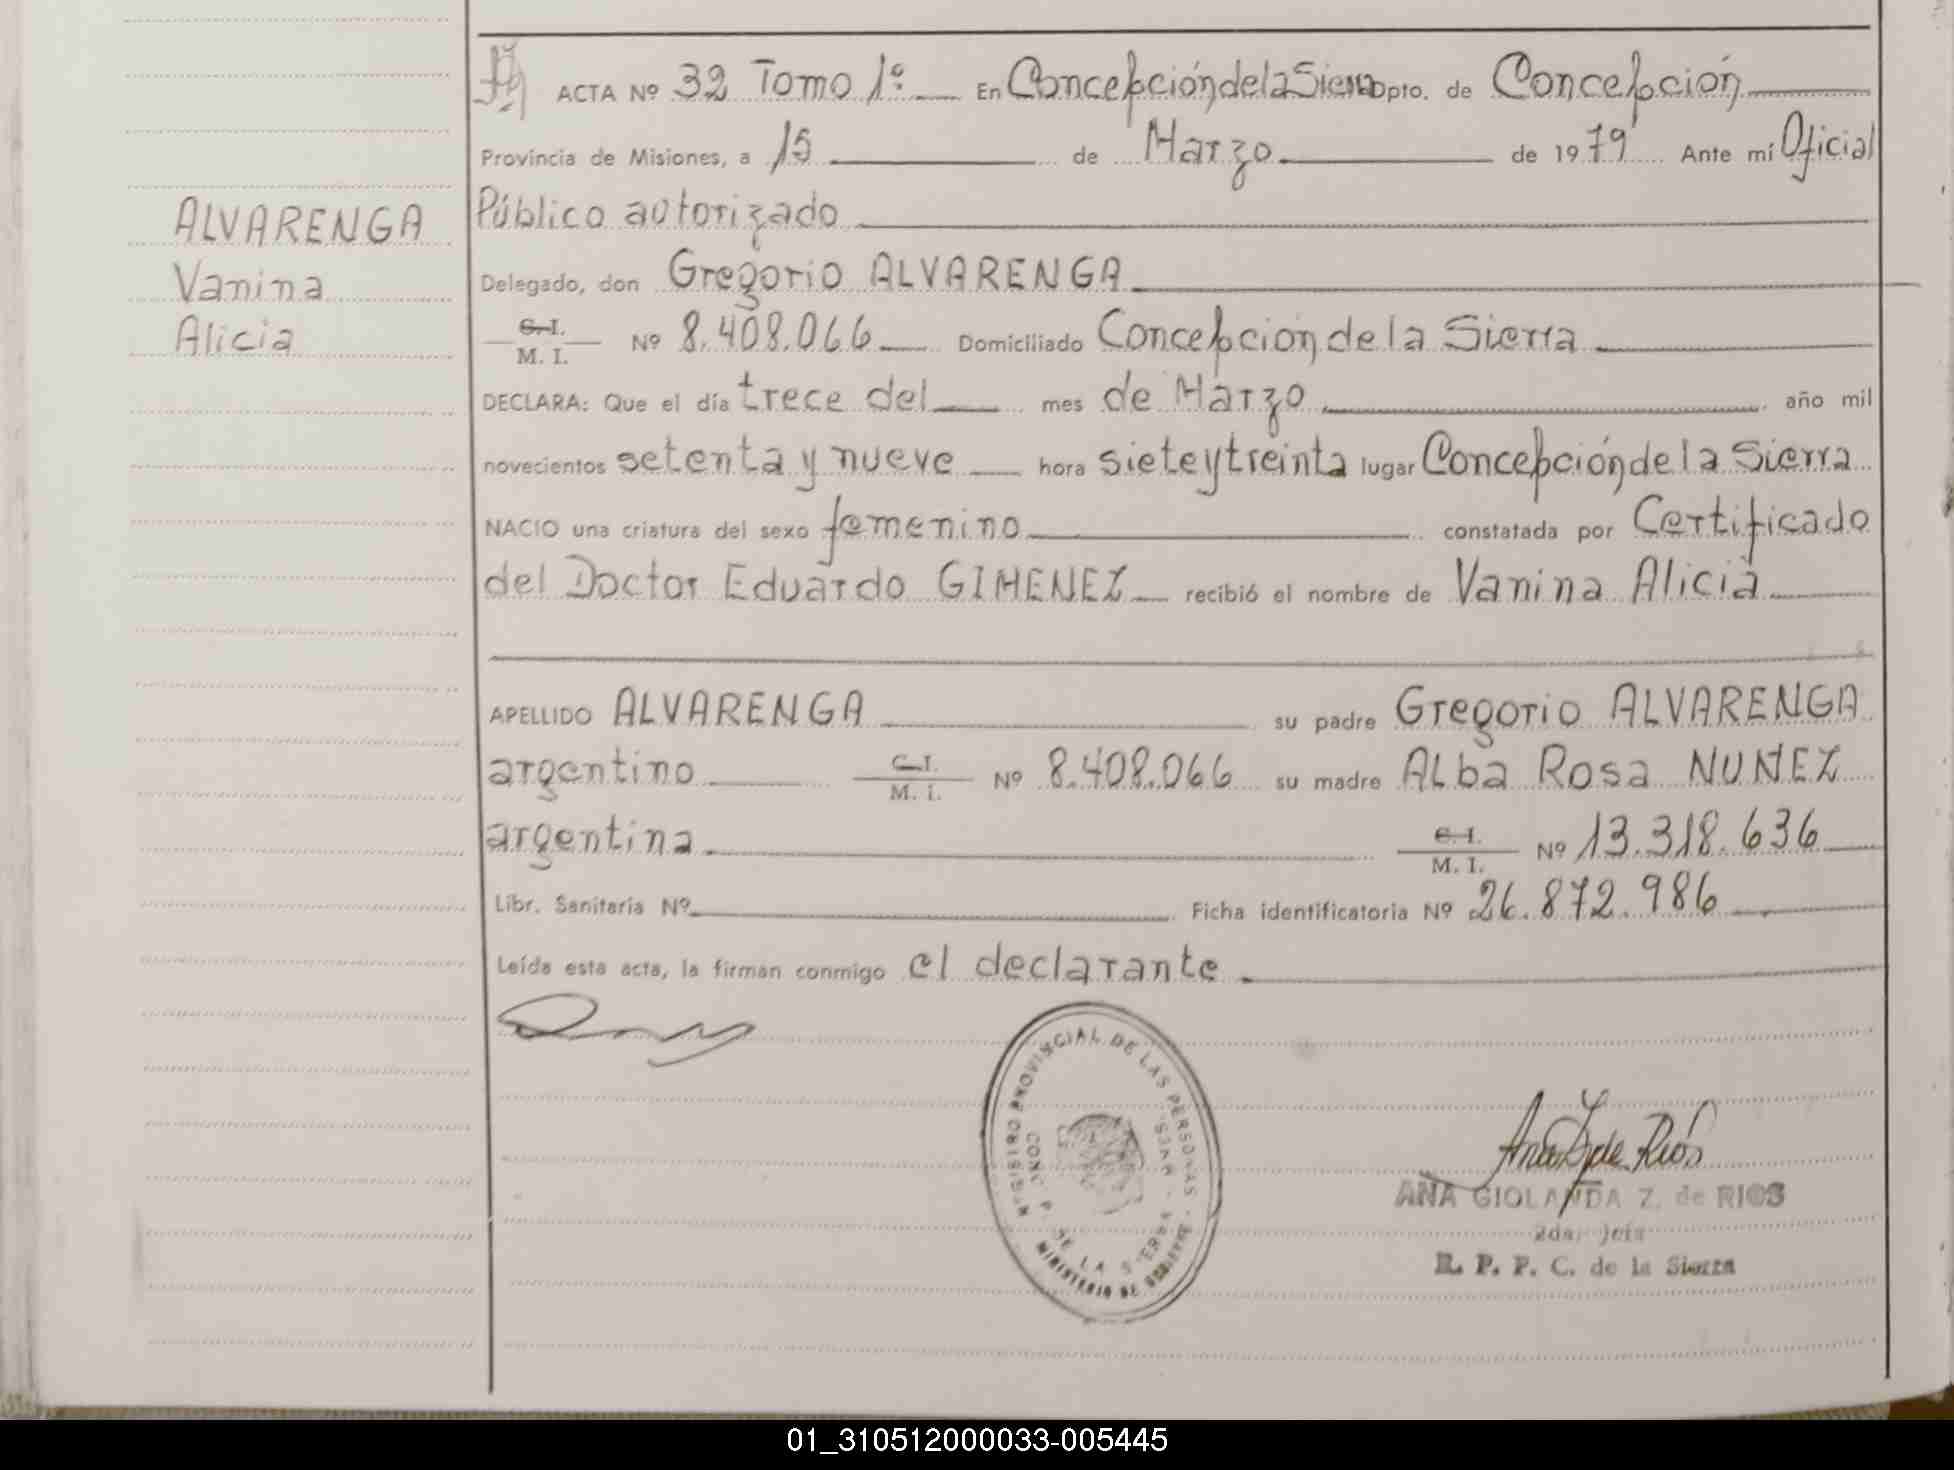 ACTA Nº 32 Tomo 1º En Concepción de la Sierra Dpto. de Concepción
Provincia de Misiones, a 15 de Marzo de 1979 Ante mí Oficial
Público autorizado
ALVARENGA
Vanina
Alicia
Delegado, don Gregorio ALVARENGA
C. I.
M. I. Nº 8.408.066 Domiciliado Concepción de la Sierra
DECLARA: Que el día trece del mes de Marzo año mil
novecientos setenta y nueve hora siete y treinta lugar Concepción de la Sierra
NACIO una criatura del sexo femenino constatada por Certificado
del Doctor Eduardo GIMENEZ recibió el nombre de Vanina Alicia
APELLIDO ALVARENGA su padre Gregorio ALVARENGA
argentino C. I.
M. I. Nº 8.408.066 su madre Alba Rosa NUÑEZ
argentina C. I.
M. I. Nº 13.318.636
Libr. Sanitaria Nº Ficha identificatoria Nº 26.872.986
Leída esta acta, la firman conmigo el declarante
REGISTRO PROVINCIAL DE LAS PERSONAS
CONC P. DE LA SIERRA - MNES
MINISTERIO DE GOBIERNO
ANA GIOLANDA Z. de RIOS
2da. Jefa
R. P. P. C. de la Sierra
01_310512000033-005445